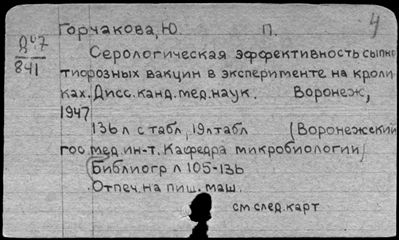 Горчакова, Ю. П. 4
Дч7
841
Серологическая эффективность сыпно
тифозных вакцин в эксперименте на кроли
ках. Дисс. канд. мед. наук. Воронеж,
1947
136 л с табл, 19 л табл (Воронежский
гос мед. ин-т. Кафедра микробиологии)
(Библиогр л 105-136
Отпеч. на пиш. маш.
см след. карт